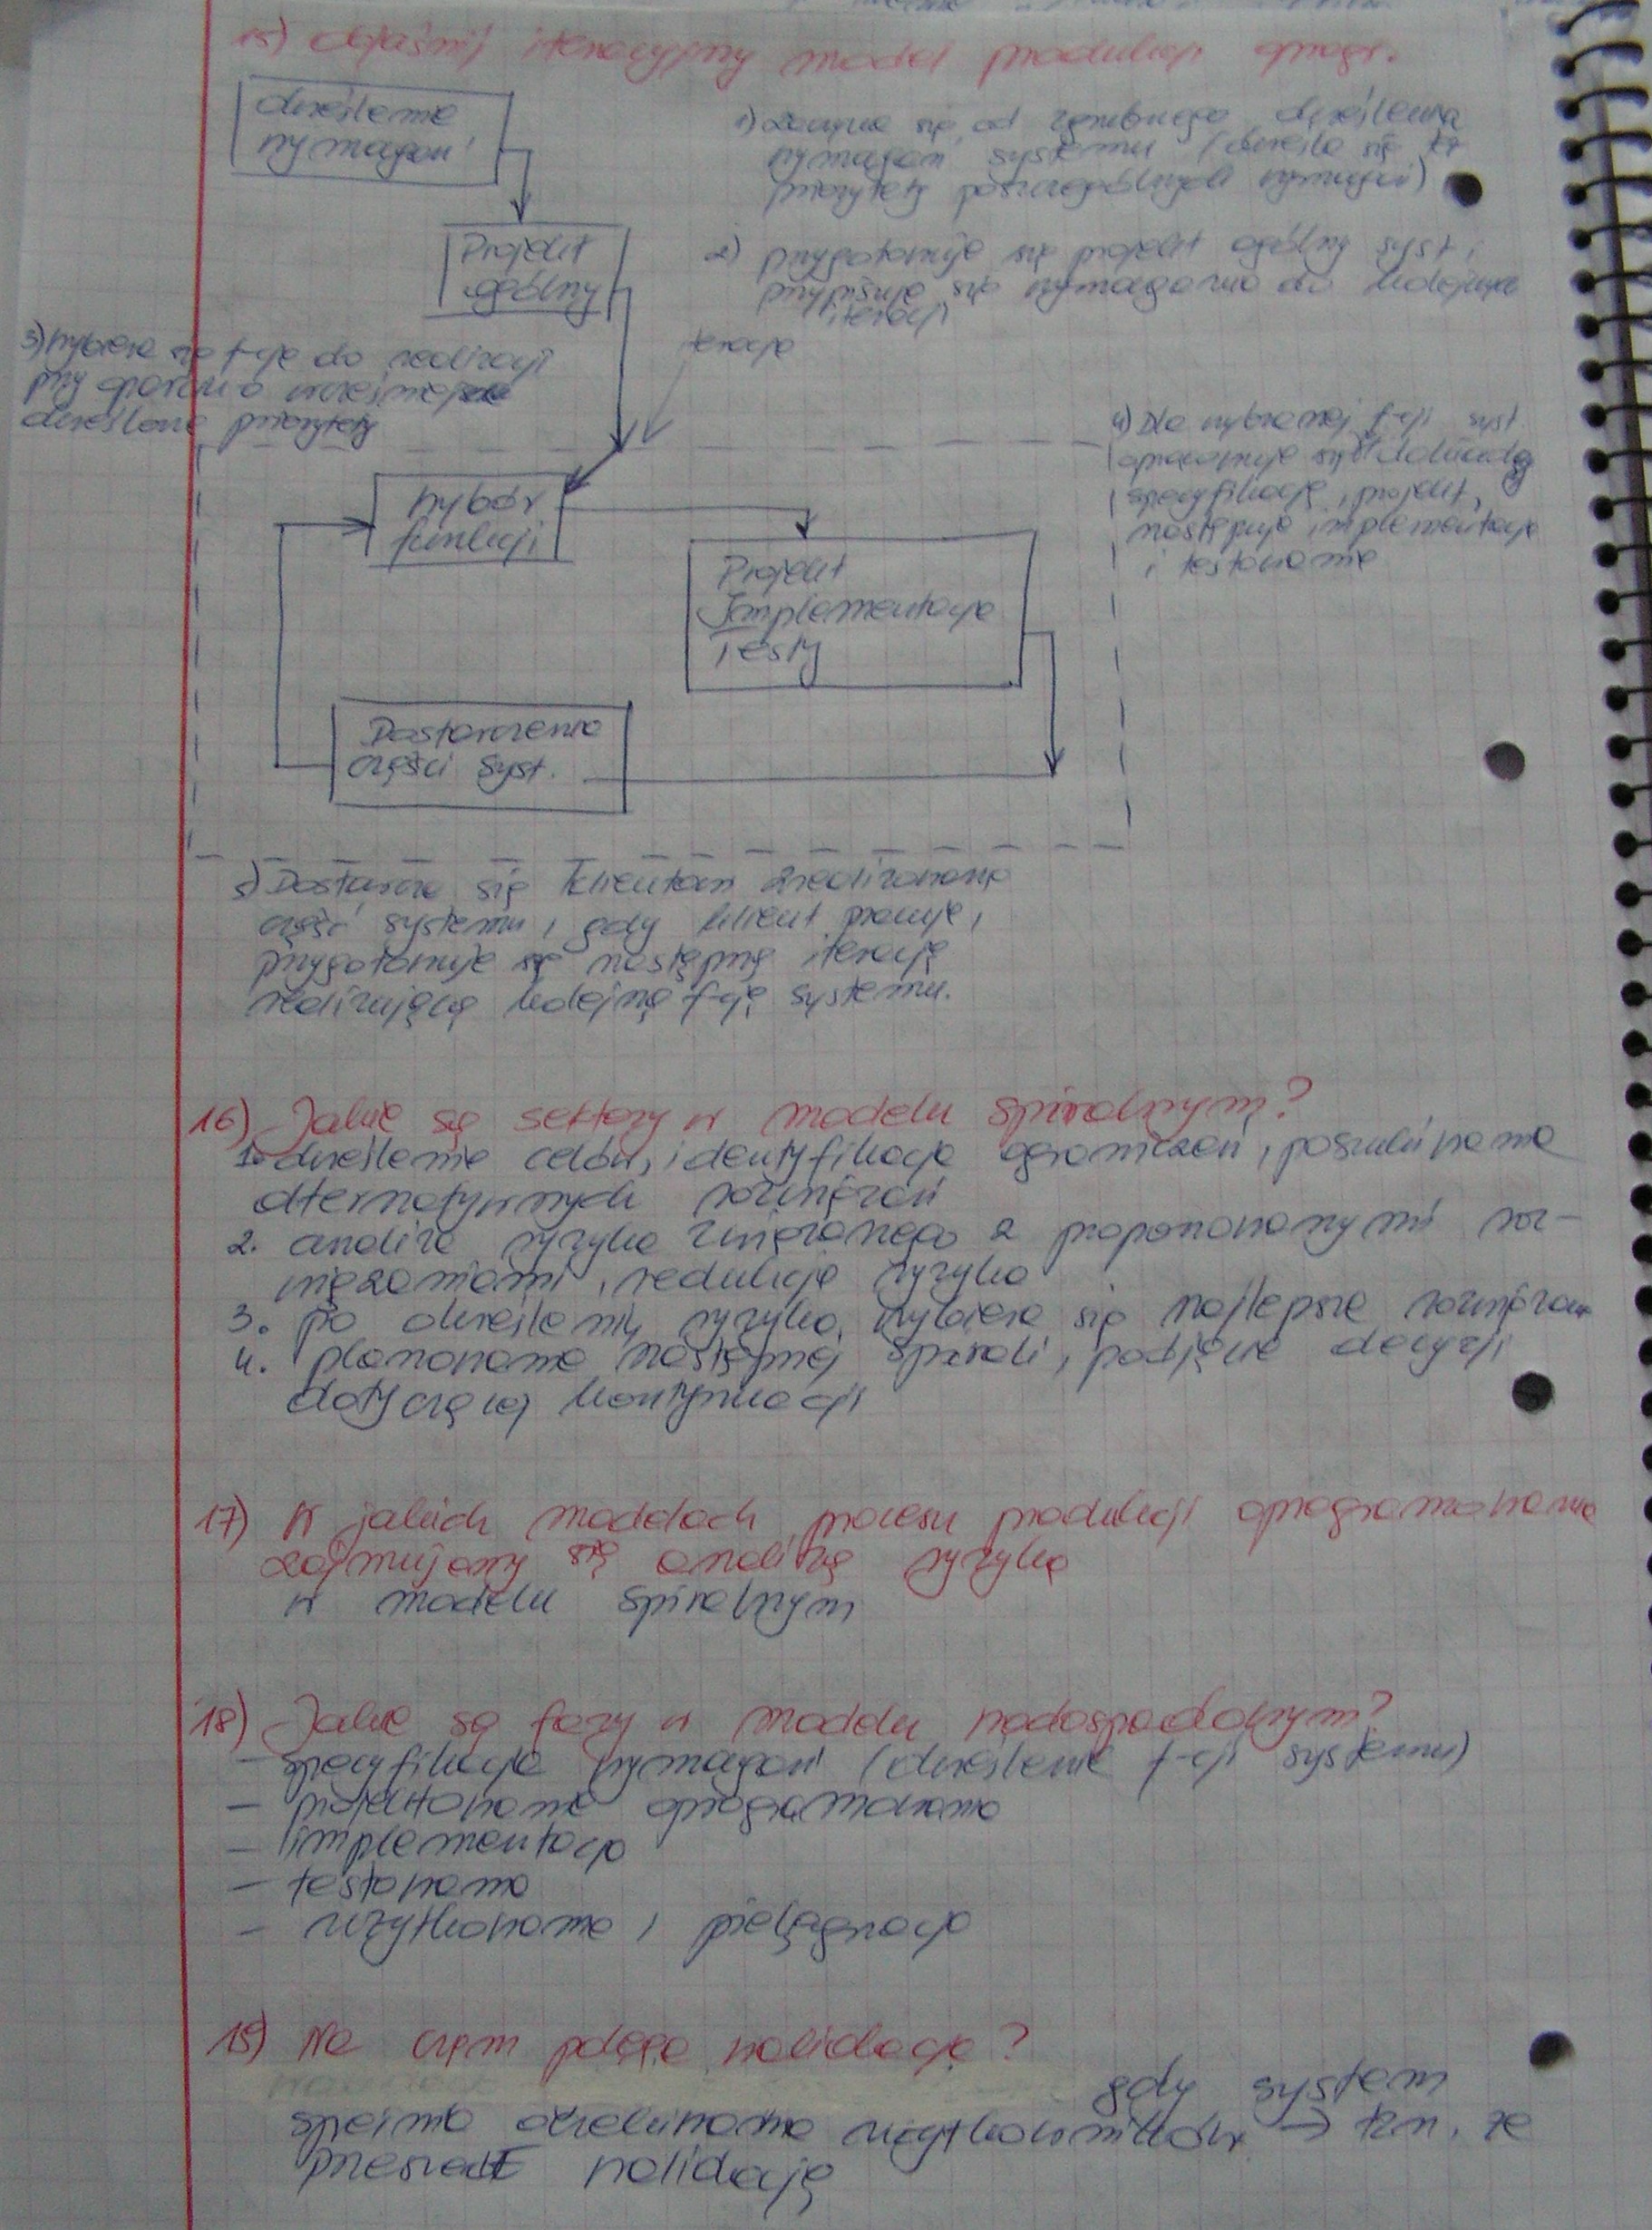 15) objaśnij iteracyjny model produkcji oprogr.
określenie
wymagań
1) Zaczyna się od zgrubnego określenia
wymagań systemu (określa się też
priorytety poszczególnych wymagań)
Projekt
ogólny
2) przygotowuje się projekt ogólny syst. i
przypisuje się wymagania do kolejnych
iteracji
iteracja
3) wybiera się f-cje do realizacji
przy oparciu o wcześniej
określone priorytety
4) Dla wybranej f-cji syst.
opracowuje się dokładną
specyfikację, projekt,
następuje implementacja
i testowanie
Wybór
funkcji
Projekt
Implementacja
Testy
Dostarczenie
części syst.
5) Dostarcza się klientom zrealizowaną
część systemu, gdy klient pracuje,
przygotowuje się następną iterację
realizującą kolejną f-cję systemu.
16) Jakie są sektory w modelu spiralnym?
1. określenie celów, identyfikacja ograniczeń, poszukiwanie
alternatywnych rozwiązań
2. analiza ryzyka związanego z proponowanymi roz-
wiązaniami, redukcja ryzyka
3. po określeniu ryzyka, wybiera się najlepsze
4. planowanie następnej spirali, podjęcie decyzji
dotyczącej kontynuacji
17) W jakich modelach procesu produkcji oprogramowania
zajmujemy się analizą ryzyka
w modelu spiralnym
18) Jakie są fazy w modelu kaskadowym?
- specyfikacja wymagań (określenie f-cji systemu)
- projektowanie oprogramowania
- implementacja
- testowanie
- użytkowanie i pielęgnacja
19) Na czym polega walidacja?
gdy system
spełnia oczekiwania użytkowników → tzn. że
przeszedł walidację